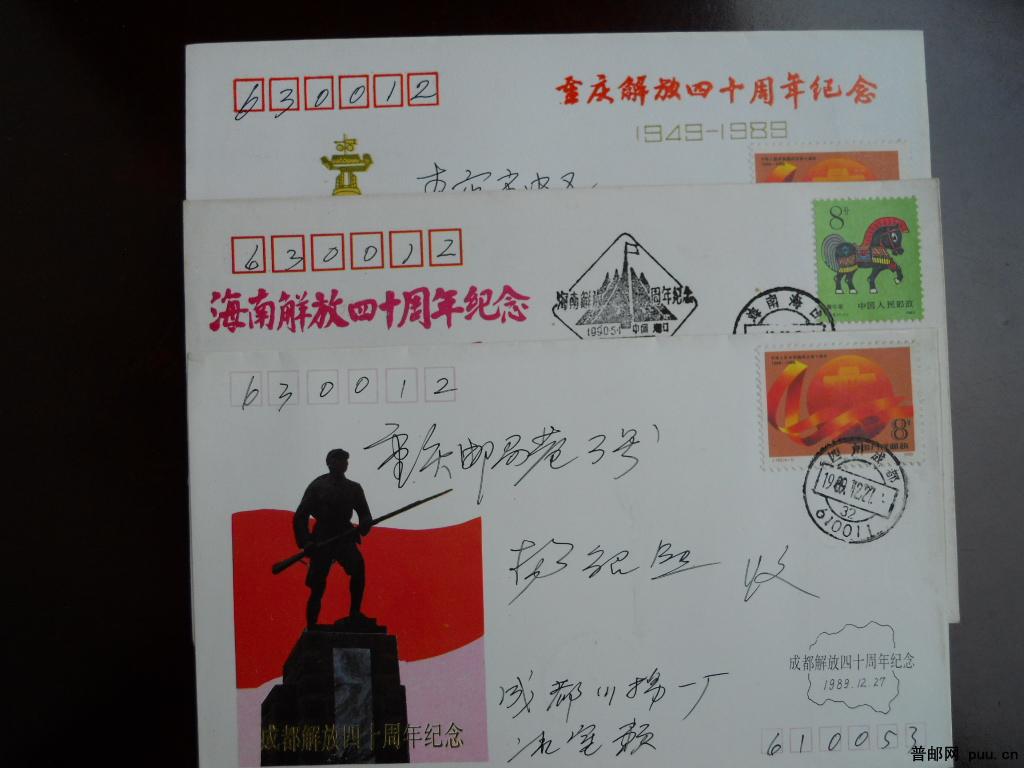 630012
重庆解放四十周年纪念
1949-1989
630012
海南解放四十周年纪念
海南解放
周年纪念
1990.5.1 中国 海口
8分
中国人民邮政
海南海口
630012
8分
重庆邮局巷3号
四川成都
1989.12.27
32
610011
收
成都解放四十周年纪念
1989.12.27
成都川棉一厂
成都解放四十周年纪念
610053
普邮网 puu.cn